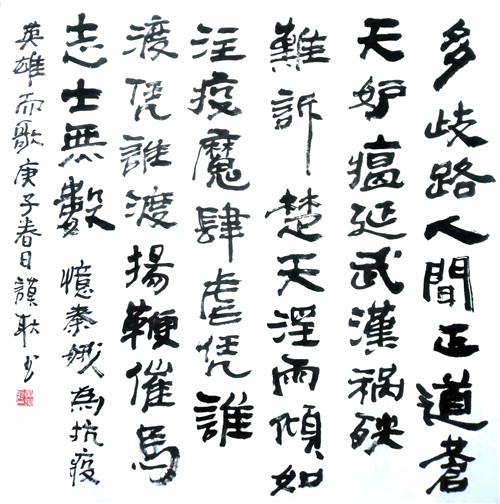 多歧路人間正道蒼
天妒瘟延武漢祸殃
難訴楚天淫雨傾如
注疫魔肆虐凭誰
渡凭誰渡揚鞭催馬
志士無數 憶秦娥為抗疫
英雄而歌庚子春日耿书